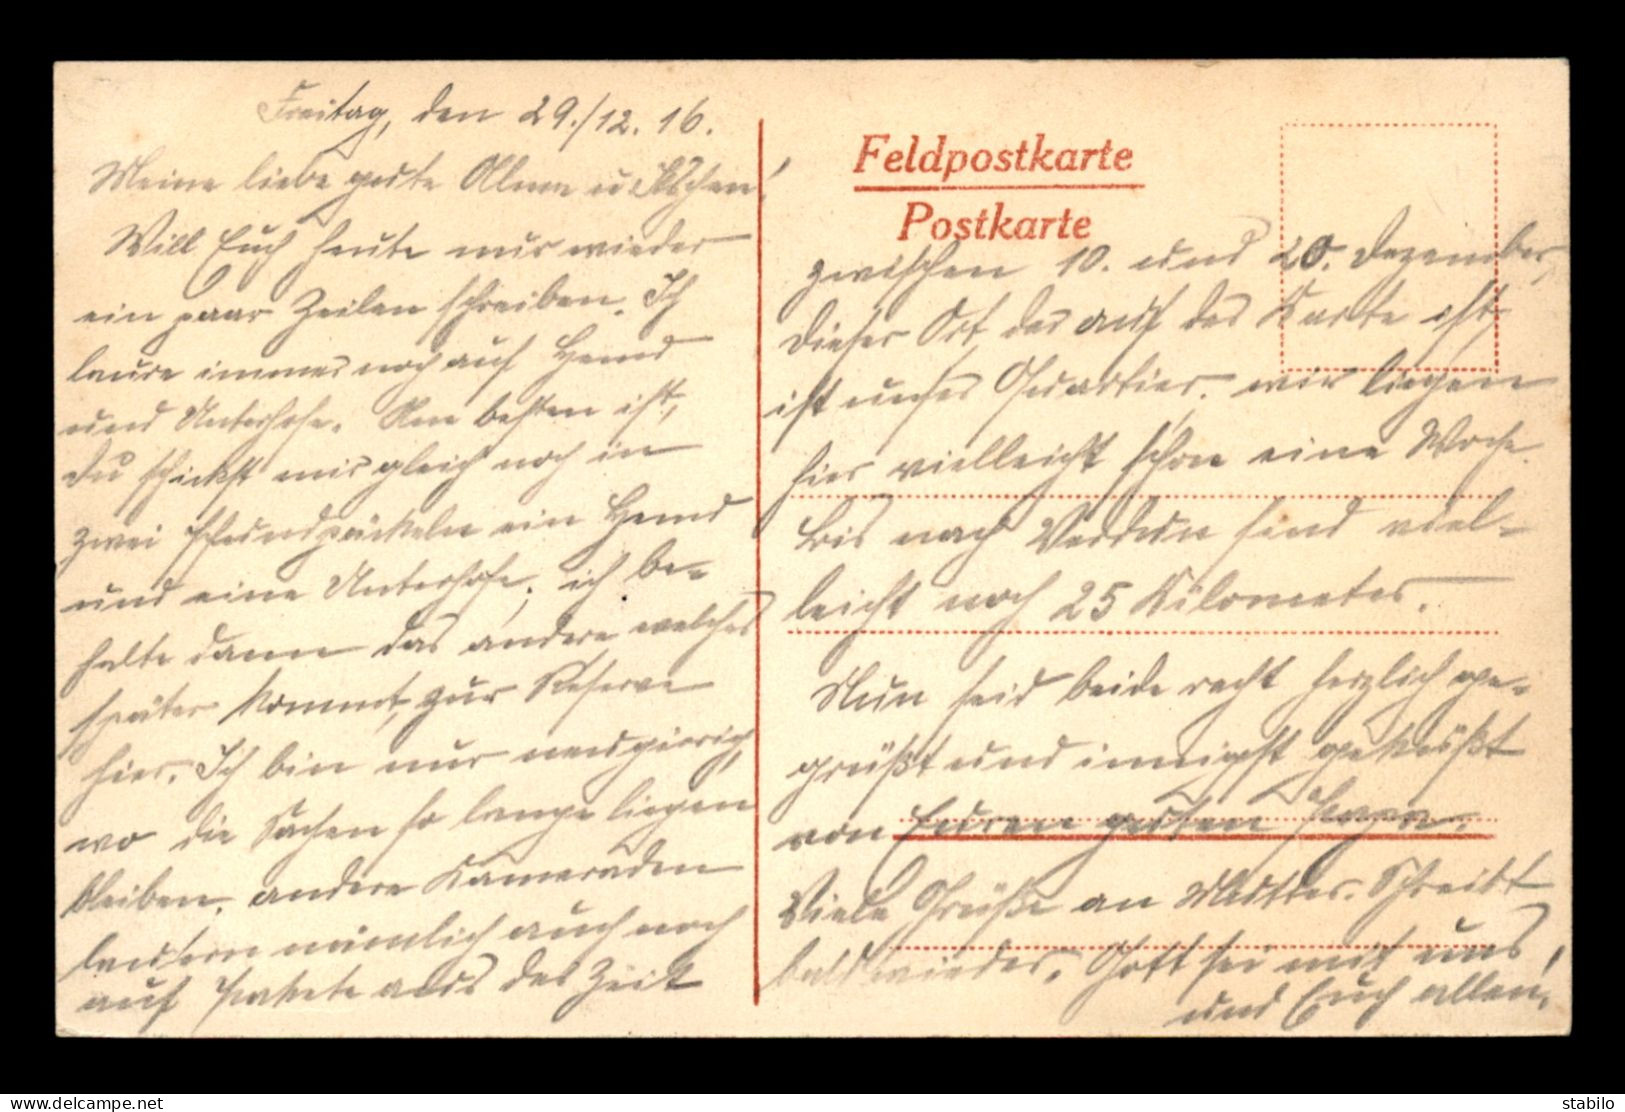 Freitag, den 29./12.16.
Meine liebe gute Alma u.
Will Euch heute nur wieder
ein paar Zeilen schreiben. Ich
laure immer noch auf Hemd
und Unterhose. Am besten ist,
Du schickst mir gleich noch in
zwei Pfundpäckeln ein Hemd
und eine Unterhose, ich be-
halte dann das andere welches
später kommt, zur Reserve
hier. Ich bin nur neugierig,
wo die Sachen so lange liegen
bleiben. andere Kameraden
lauern nämlich auch noch
auf Pakete aus der Zeit
Feldpostkarte
Postkarte
zwischen 10. und 20. Dezember,
Dieser Ort, der auf der Karte ist,
ist unser Quartier. wir liegen
hier vielleicht schon eine Woche.
Bis nach Verdun sind viel-
leicht noch 25 Kilometer.
Nun seid beide recht herzlich ge-
grüßt und innigst geküßt
von Euren guten Papa.
Viele Grüße an Mutter. Schreibt
bald wieder. Gott sei mit uns,
und Euch allen.
stabilo